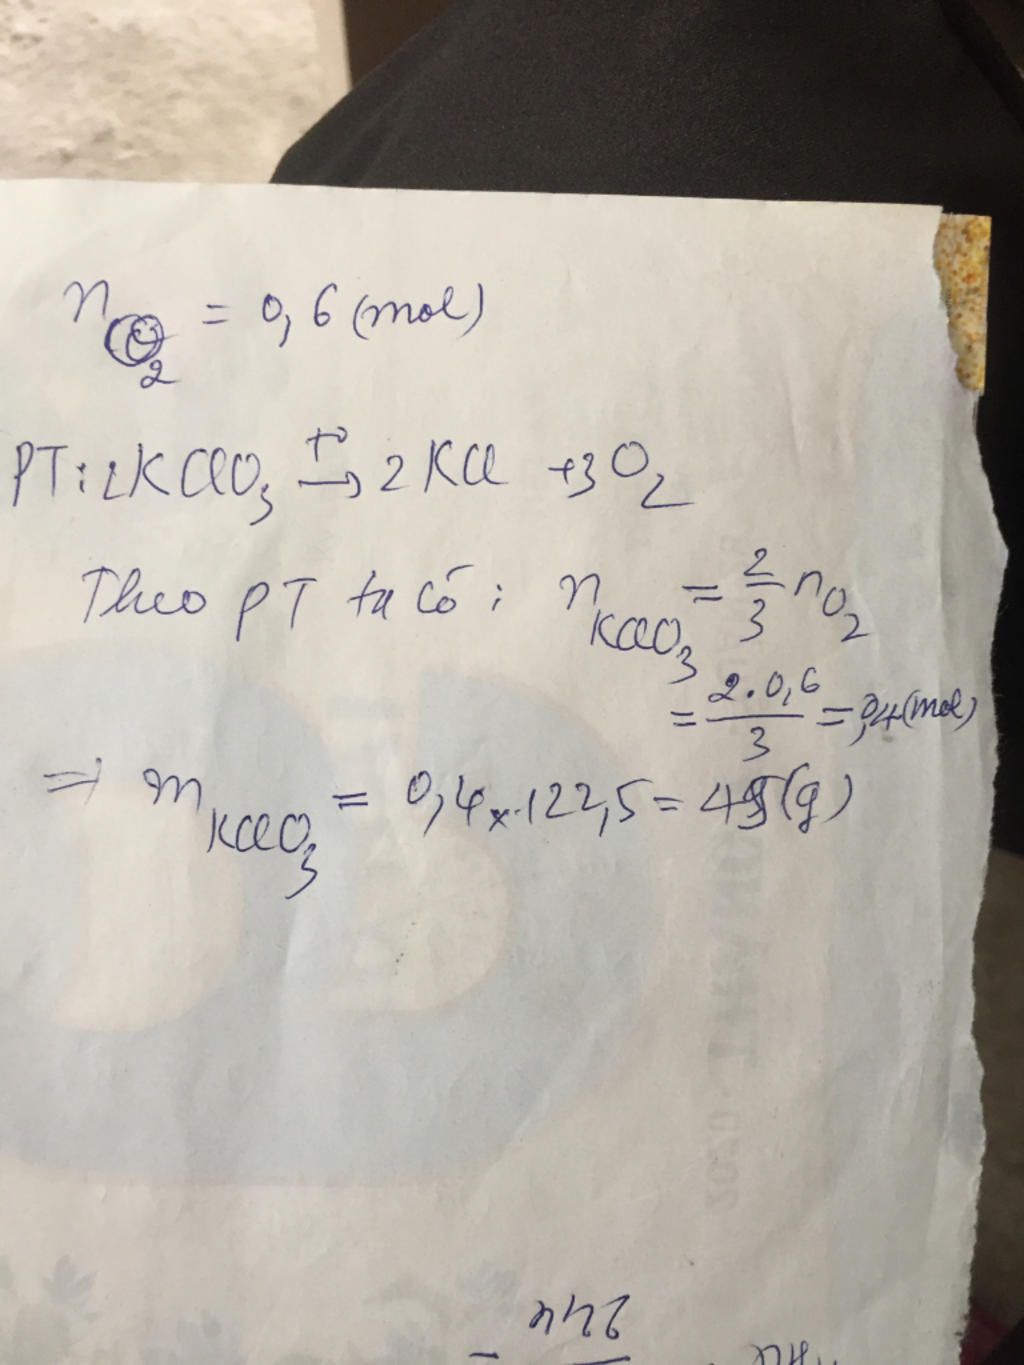 n_O2 = 0,6 (mol)
PT: 2KClO3 t° → 2KCl + 3O2
Theo PT ta có: n_KClO3 = 2/3 n_O2
= 2.0,6/3 = 0,4 (mol)
=> m_KClO3 = 0,4 x 122,5 = 49 (g)